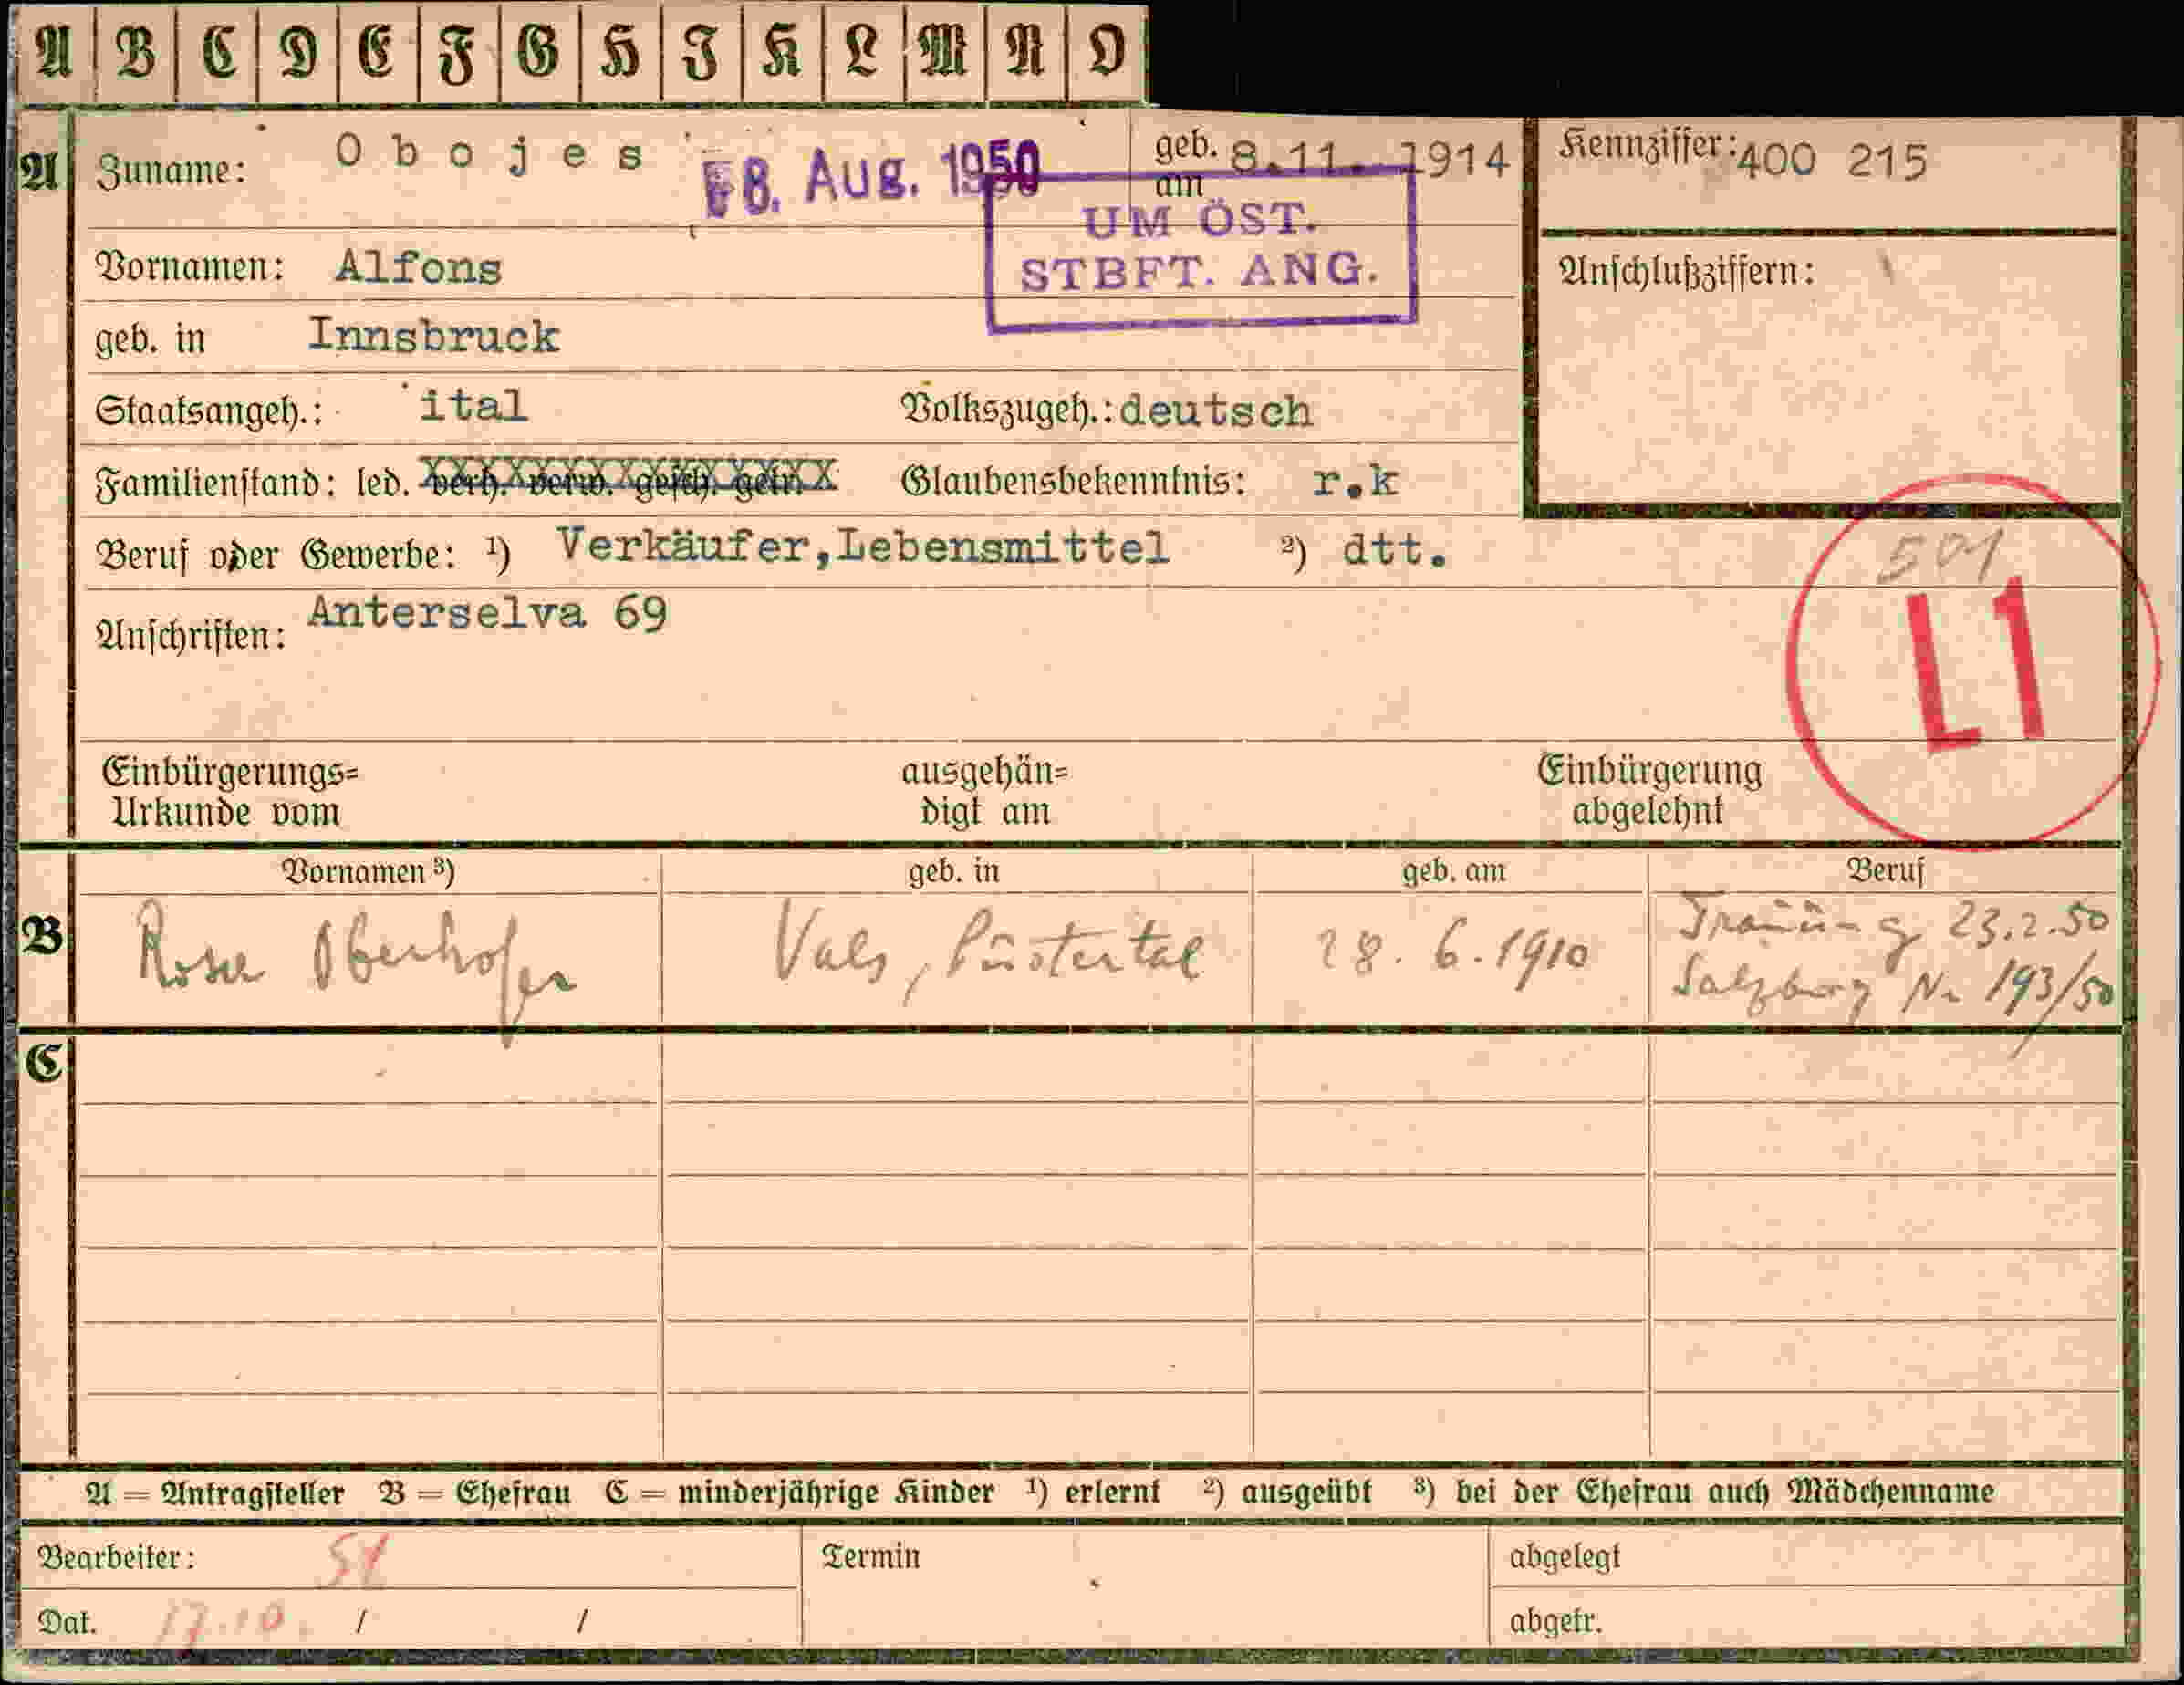 A B C D E F G H I K L M N O
A Zuname: Obojes 8. Aug. 1950 geb. am 8.11. 1914 Kennziffer: 400 215
UM ÖST.
STBFT. ANG.
Vornamen: Alfons Anschlußziffern:
geb. in Innsbruck
Staatsangeh.: ital Volkszugeh.: deutsch
Familienstand: led. verh. verw. gesch. getr. Glaubensbekenntnis: r.k
Beruf oder Gewerbe: ¹) Verkäufer,Lebensmittel ²) dtt. 501
Anschriften: Anterselva 69
L1
Einbürgerungs= ausgehän= Einbürgerung
Urkunde vom digt am abgelehnt
Vornamen ³) geb. in geb. am Beruf
B Rosa Oberhofer Vals, Pustertal 28. 6. 1910 Trauung 23.2.50
Salzburg Nr 193/50
C
A = Antragsteller B = Ehefrau C = minderjährige Kinder ¹) erlernt ²) ausgeübt ³) bei der Ehefrau auch Mädchenname
Bearbeiter: Termin abgelegt
Dat. 17.10. / / abgetr.